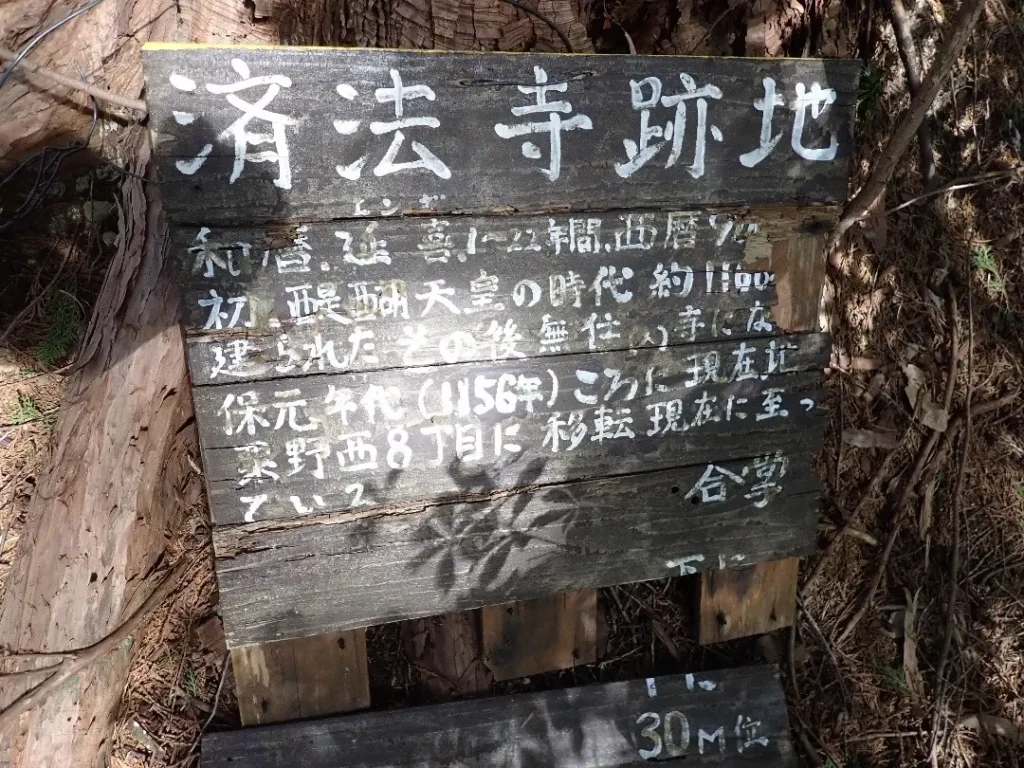 済法寺跡地
エンギ
和暦.延喜.1〜22年間.西暦90
初.醍醐天皇の時代約1100
建られたその後無住の寺にな
保元年代(1156年)ころに現在地
粟野西8丁目に移転現在に至っ
ている
合掌
下に
30M位